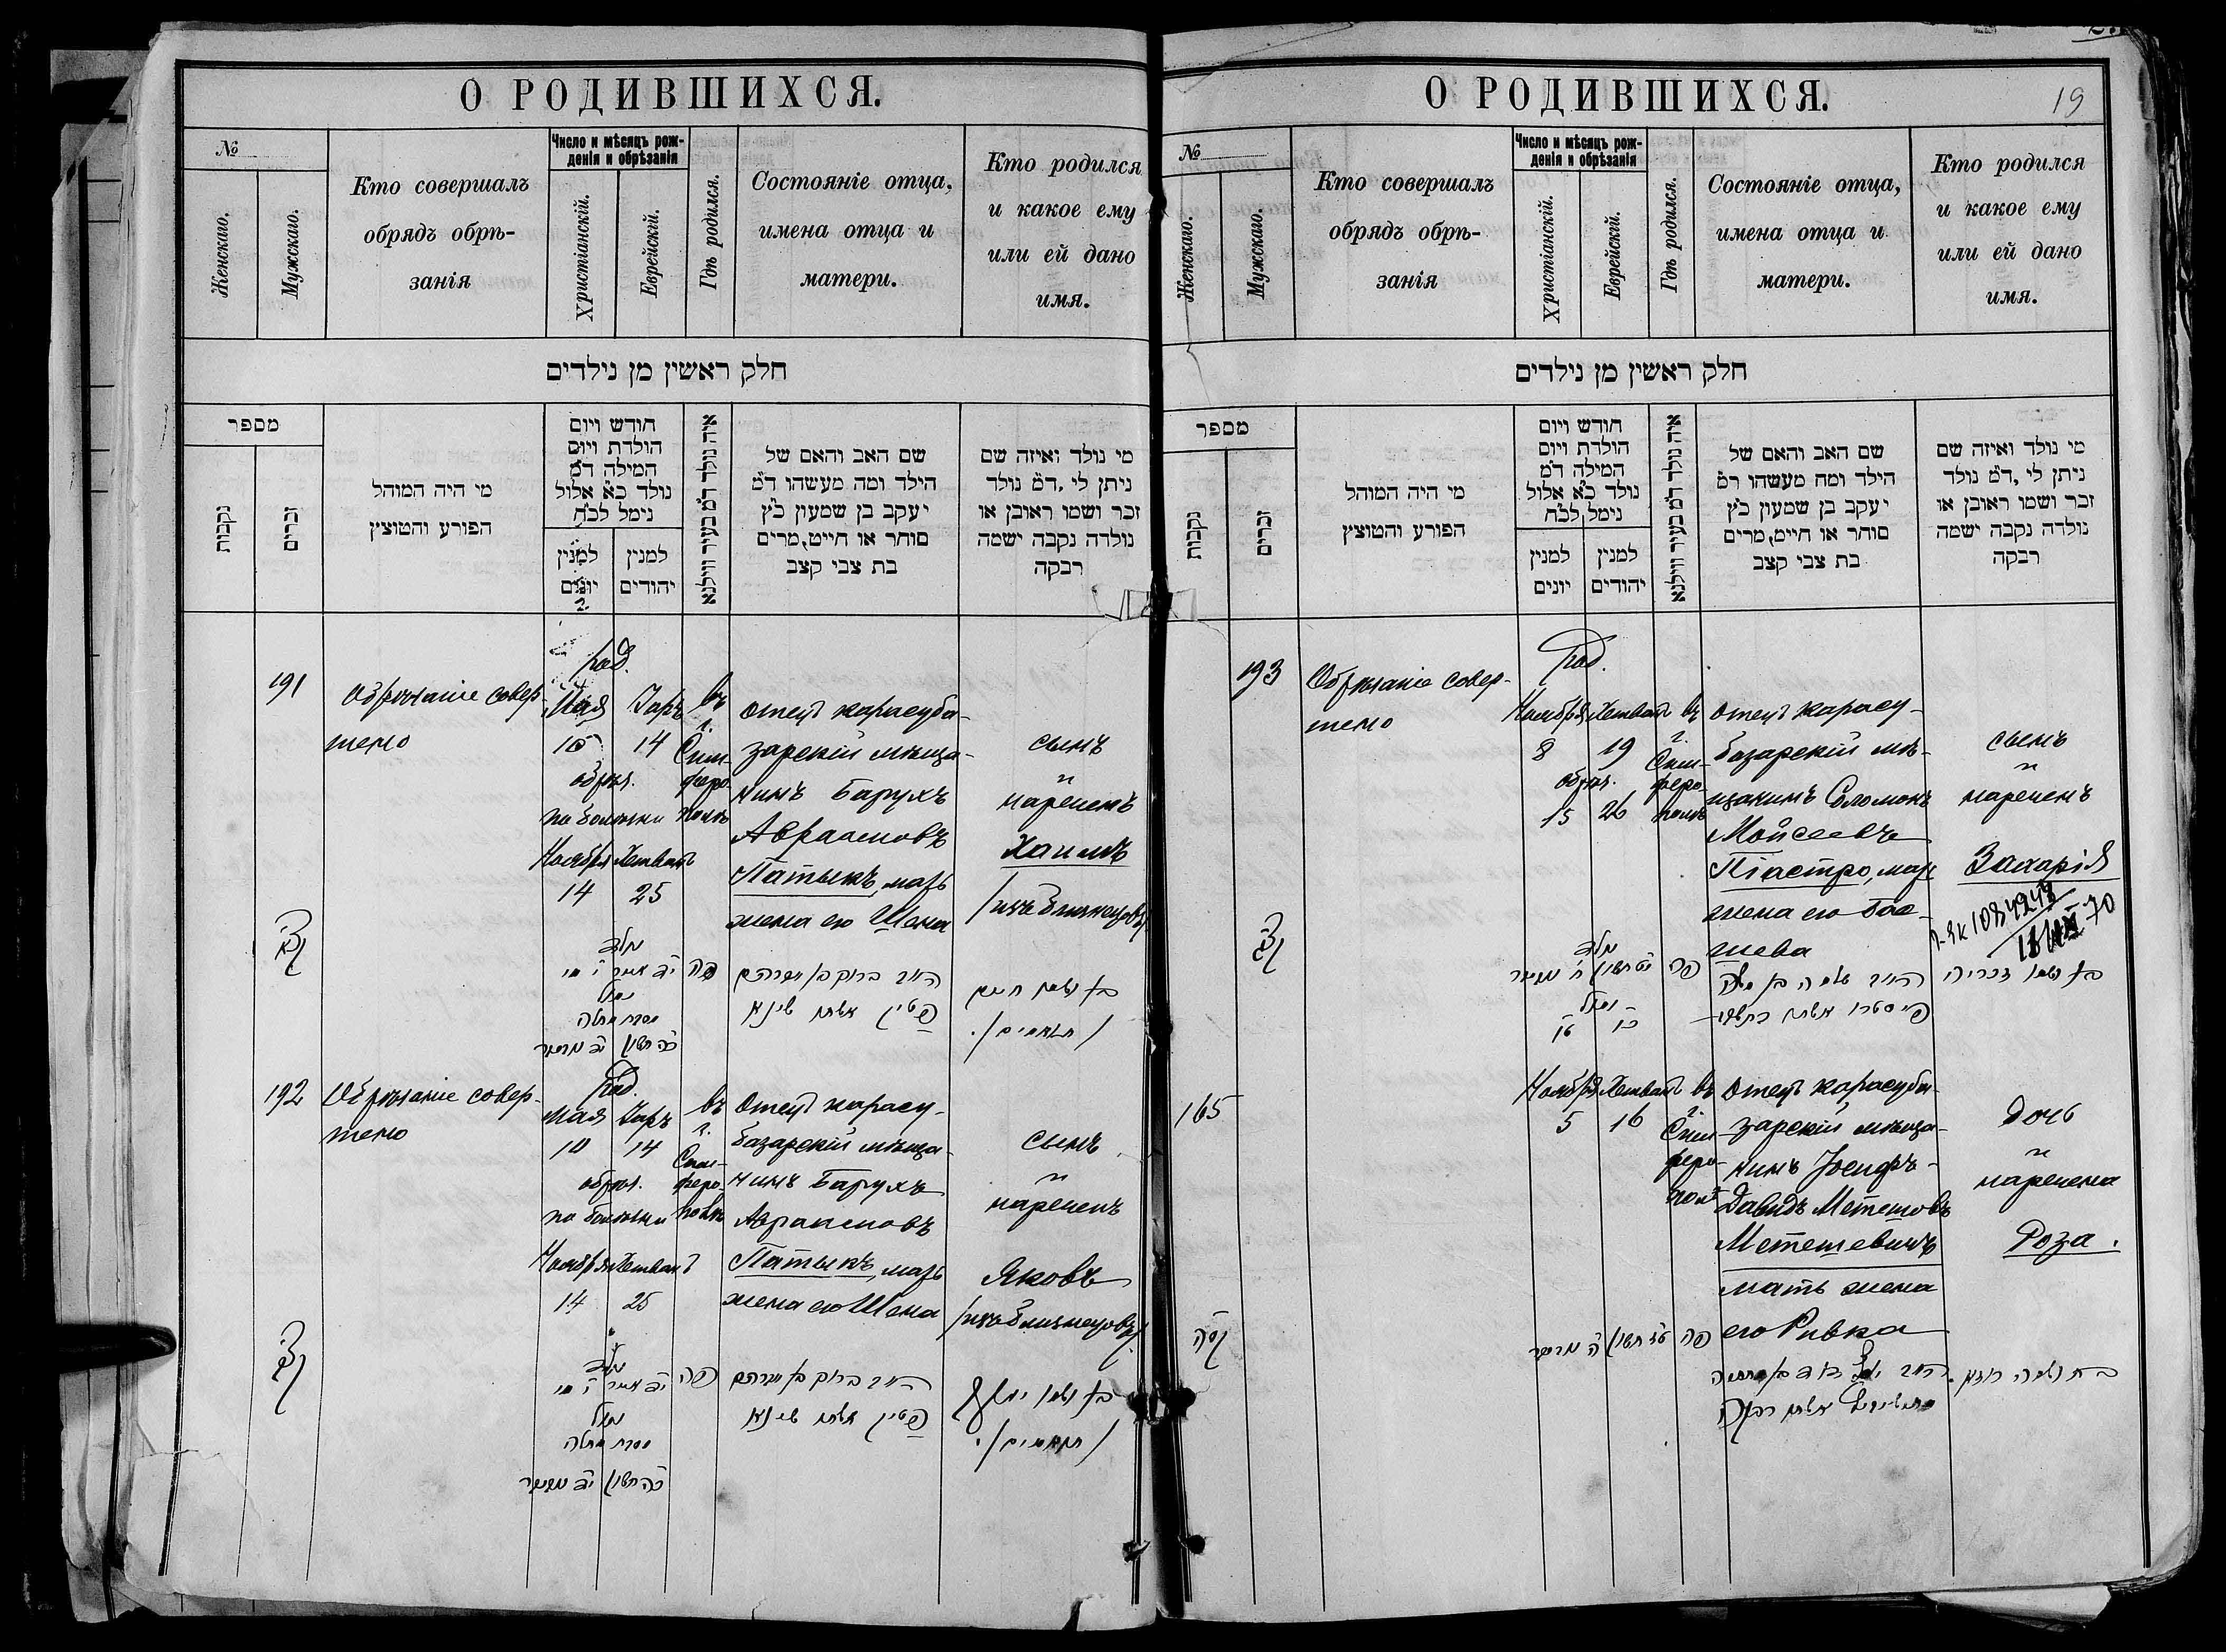 О РОДИВШИХСЯ.
№
Женскаго.
Мужскаго.
Кто совершалъ
обрядъ обрѣ-
занія
Число и мѣсяцъ рож-
денія и обрѣзанія
Христіанскій.
Еврейскій.
Гдѣ родился.
Состояніе отца,
имена отца и
матери.
Кто родился
и какое ему
или ей дано
имя.
חלק ראשין מן נילדים
מספר
נקבות
זכרים
מי היה המוהל
הפורע והמוצץ
חודש ויום
הולדת ויום
המילה ד״מ
נולד כ״א אלול
נימל לכ״ח
למנין
יונים
למנין
יהודים
איה נולד ד״מ בעיר ווילנא
שם האב והאם של
הילד ומה מעשהו ד״מ
יעקב בן שמעון כ״ץ
סוחר או חייט, מרים
בת צבי קצב
מי נולד ואיזה שם
ניתן לי, ד״מ נולד
זכר ושמו ראובן או
נולדה נקבה ישמה
רבקה
191
Обрѣзаніе совер-
шено
род.
Мая Іаръ
10 14
обрѣз.
по болѣзни
Ноября Хешванъ
14 25
въ
г.
Сим-
феро-
полѣ
отецъ карасуба-
зарскій мѣща-
нинъ Барухъ
Аврамовъ
Патыкъ, мать
жена его Шена
сынъ
и
нареченъ
Хаимъ
/изъ близнецовъ/
פה
192
Обрѣзаніе совер-
шено
род.
Мая Іаръ
10 14
обрѣз.
по болѣзни
Ноября Хешванъ
14 25
въ
г.
Сим-
феро-
полѣ
Отецъ карасу-
базарскій мѣща-
нинъ Барухъ
Аврамовъ
Патыкъ, мать
жена его Шена
сынъ
и
нареченъ
Яковъ
/изъ близнецовъ/
פה
19
О РОДИВШИХСЯ.
№
Женскаго.
Мужскаго.
Кто совершалъ
обрядъ обрѣ-
занія
Число и мѣсяцъ рож-
денія и обрѣзанія
Христіанскій.
Еврейскій.
Гдѣ родился.
Состояніе отца,
имена отца и
матери.
Кто родился
и какое ему
или ей дано
имя.
חלק ראשין מן נילדים
מספר
נקבות
זכרים
מי היה המוהל
הפורע והמוצץ
חודש ויום
הולדת ויום
המילה ד״מ
נולד כ״א אלול
נימל לכ״ח
למנין
יונים
למנין
יהודים
איה נולד ד״מ בעיר ווילנא
שם האב והאם של
הילד ומה מעשהו ד״מ
יעקב בן שמעון כ״ץ
סוחר או חייט, מרים
בת צבי קצב
מי נולד ואיזה שם
ניתן לי, ד״מ נולד
זכר ושמו ראובן או
נולדה נקבה ישמה
רבקה
193
Обрѣзаніе совер-
шено
род.
Ноября Хешванъ
8 19
обрѣз.
15 26
въ
г.
Сим-
феро-
полѣ
отецъ карасу-
базарскій мѣ-
щанинъ Соломонъ
Мойсеевъ
Піастро, мать
жена его Бас-
шева
сынъ
и
нареченъ
Захарія
פה
בן ושמו זכריה
165
Ноября Хешванъ
5 16
въ
г.
Сим-
феро-
полѣ
отецъ карасуба-
зарскій мѣща-
нинъ Іосифъ-
Давидъ Метешовъ
Метешевичъ
мать жена
его Ривка
дочь
и
наречена
Роза.
קסה
פה
בת ושמה רוזא